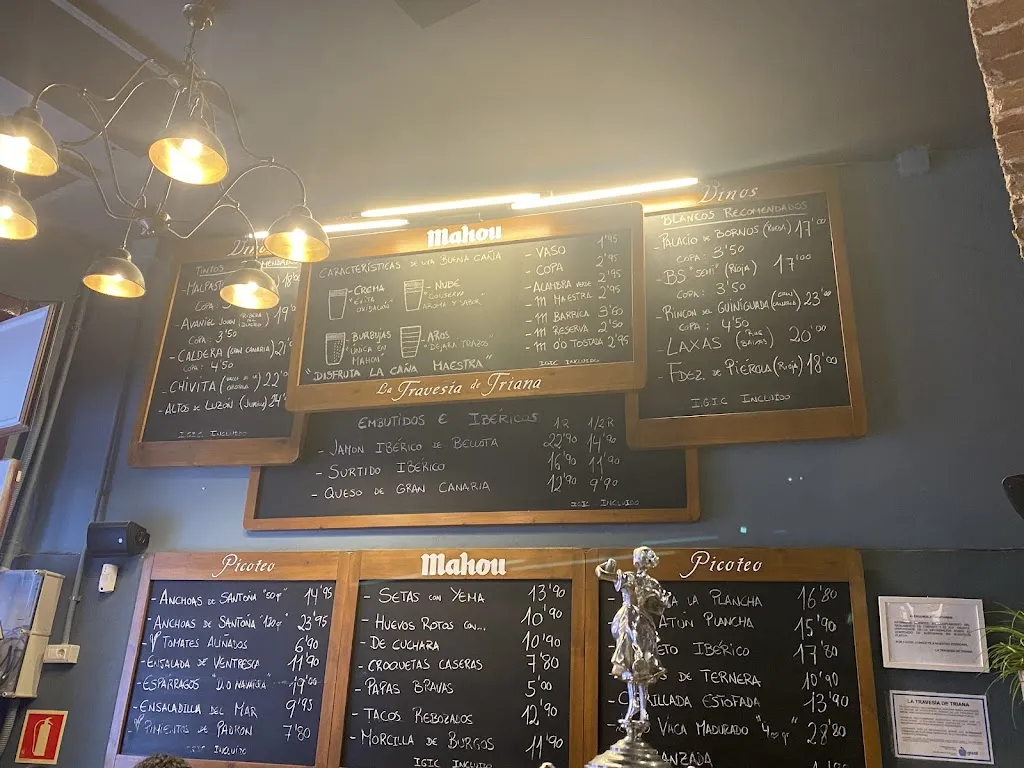 Vinos
TINTOS
- MALPAST 18'00
COPA:
- AVANIEL JOVEN (RIBERA DEL DUERO) 19'
COPA: 3'50
- CALDERA (GRAN CANARIA) 21'
COPA: 4'50
- CHIVITA 22'00
- ALTOS DE LUZÓN (Jumilla) 24'
IGIC INCLUIDO
Mahou
CARACTERÍSTICAS DE UNA BUENA CAÑA
- CREMA
"EVITA OXIDACIÓN"
- NUBE
"CONSERVA AROMA Y SABOR"
BURBUJAS
"ÚNICA EN MAHOU
- AROS
"DEJARÁ TRAZOS"
"DISFRUTA LA CAÑA MAESTRA"
- VASO 1'95
- COPA 2'95
- ALHAMBRA VERDE 2'95
- M MAESTRA 2'95
- M BARRICA 3'60
- M RESERVA 2'50
- M 0'0 TOSTADA 2'95
IGIC INCLUIDO
La Travesía de Triana
Vinos
BLANCOS RECOMENDADOS
- PALACIO DE BORNOS (RUEDA) 17'00
COPA: 3'50
- BS "SEMI" (Rioja) 17'00
COPA: 3'50
- RINCON DEL GUINIGUADA (GRAN CANARIA) 23'00
COPA: 4'50
- LAXAS (RIAS BAIXAS) 20'00
- FDEZ. DE PIÉROLA (Rioja) 18'00
I.G.I.C INCLUIDO
EMBUTIDOS E IBÉRICOS 1R 1/2R
- JAMON IBÉRICO DE BELLOTA 22'90 14'90
- SURTIDO IBÉRICO 16'90 11'90
- QUESO DE GRAN CANARIA 12'90 9'90
IGIC INCLUIDO
Picoteo
- ANCHOAS DE SANTOÑA "50gr" 14'95
- ANCHOAS DE SANTOÑA "120gr" 23'95
TOMATES ALIÑADOS 6'90
- ENSALADA DE VENTRESCA 11'90
- ESPARRAGOS "D.O NAVARRA" 19'00
- ENSALADILLA DEL MAR 9'95
PIMIENTOS DE PADRON 7'80
IGIC INCLUIDO
Mahou
- SETAS CON YEMA 13'90
- HUEVOS ROTOS CON... 10'90
- DE CUCHARA 10'90
- CROQUETAS CASERAS 7'80
- PAPAS BRAVAS 5'00
- TACOS REBOZADOS 12'90
- MORCILLA DE BURGOS 11'90
IGIC INCLUIDO
Picoteo
A LA PLANCHA 16'80
ATÚN PLANCHA 15'90
ETO IBÉRICO 17'80
DE TERNERA 10'90
RILLADA ESTOFADA 13'90
VACA MADURADO "400gr" 28'80
ANZADA
LA TRAVESÍA DE TRIANA
LA TRAVESÍA DE TRIANA